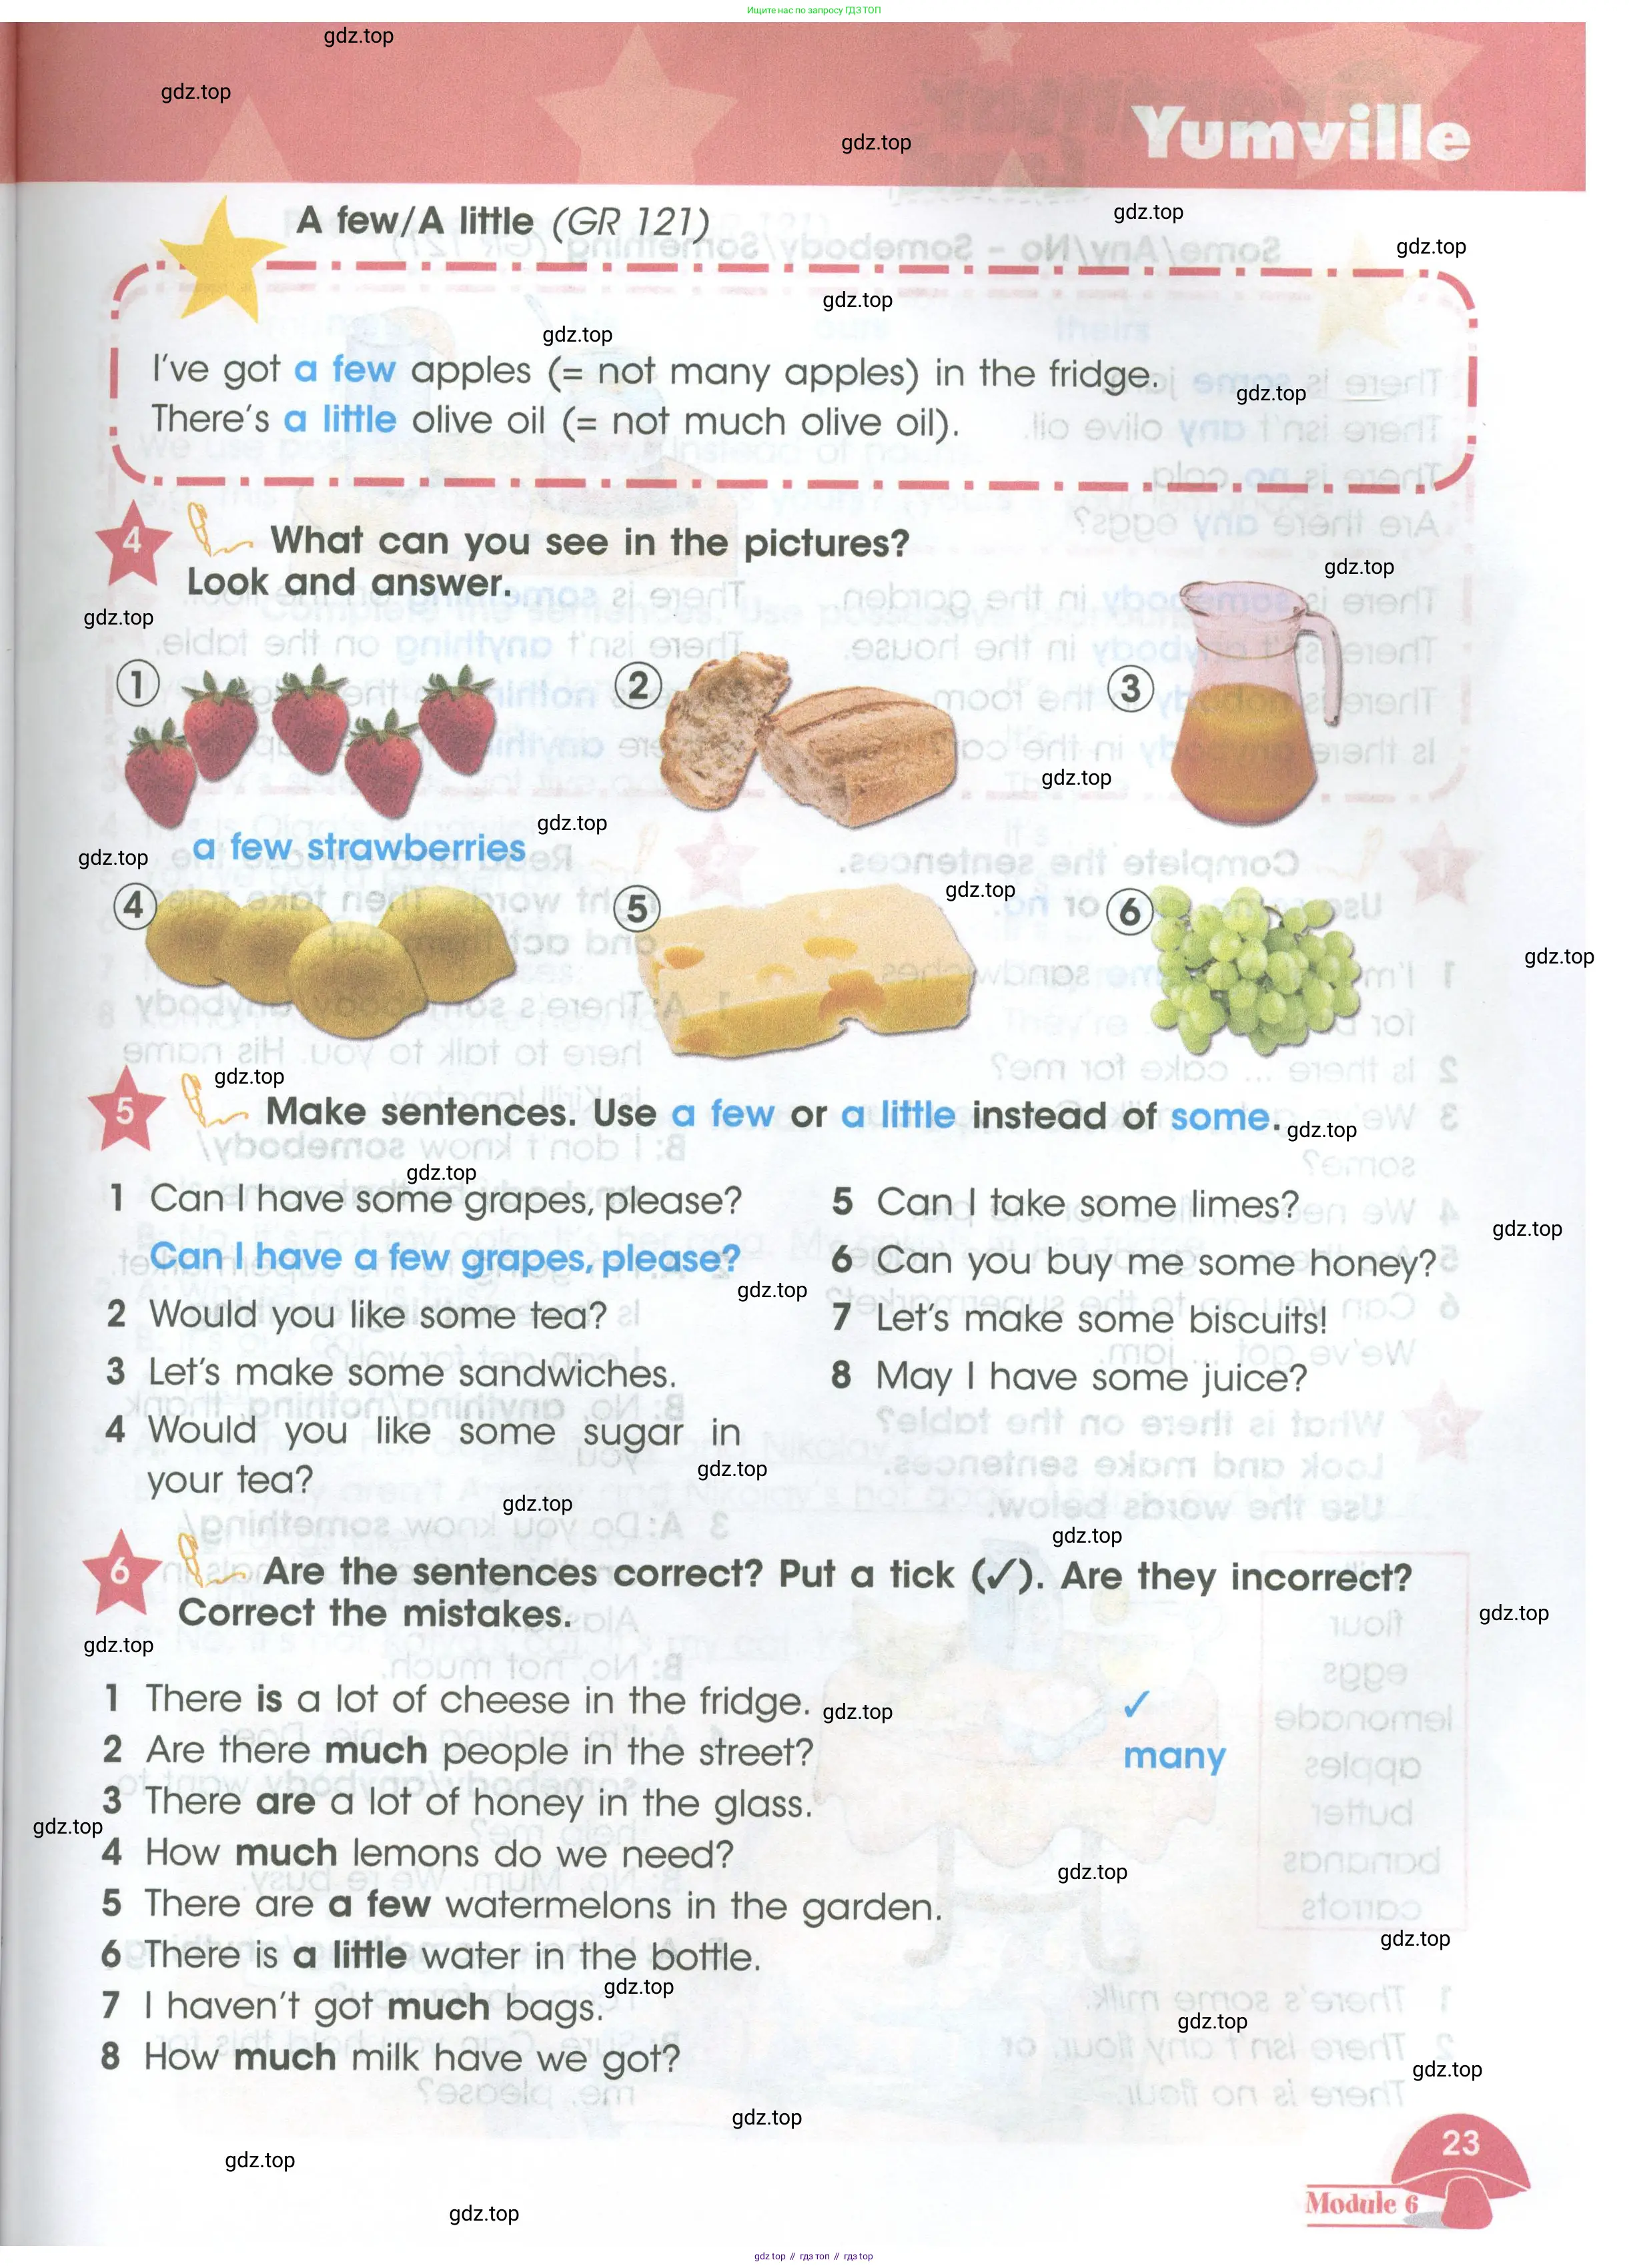 Ищите нас по запросу ГДЗ ТОП
gdz.top
gdz.top
gdz.top
Yumville
gdz.top
A few/A little (GR 121)
gdz.top
gdz.top
gdz.top
I've got a few apples (= not many apples) in the fridge.
gdz.top
There's a little olive oil (= not much olive oil).
4 What can you see in the pictures?
Look and answer.
gdz.top
gdz.top
1 2 3
gdz.top
gdz.top
a few strawberries
gdz.top
gdz.top
4 5 6
gdz.top
gdz.top
5 Make sentences. Use a few or a little instead of some.
gdz.top
gdz.top
1 Can I have some grapes, please?
Can I have a few grapes, please?
gdz.top
2 Would you like some tea?
3 Let's make some sandwiches.
4 Would you like some sugar in
your tea?
5 Can I take some limes?
gdz.top
6 Can you buy me some honey?
7 Let's make some biscuits!
8 May I have some juice?
gdz.top
gdz.top
gdz.top
6 Are the sentences correct? Put a tick (✓). Are they incorrect?
Correct the mistakes.
gdz.top
gdz.top
1 There is a lot of cheese in the fridge. ✓
gdz.top
2 Are there much people in the street? many
3 There are a lot of honey in the glass.
gdz.top
4 How much lemons do we need?
gdz.top
5 There are a few watermelons in the garden.
gdz.top
6 There is a little water in the bottle.
gdz.top
7 I haven't got much bags.
gdz.top
8 How much milk have we got?
gdz.top
gdz.top
23
gdz.top
Module 6
gdz.top
gdz.top // гдз топ // гдз.top